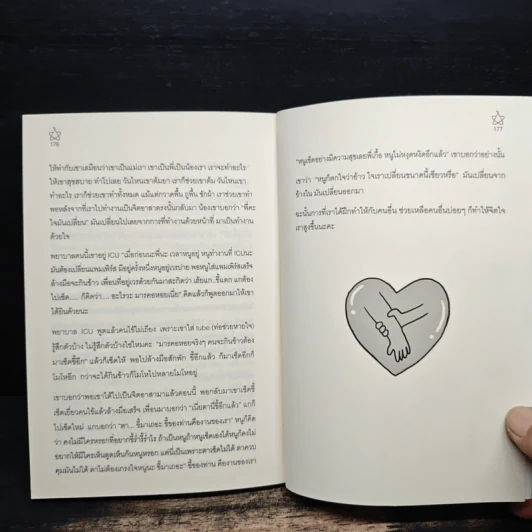 176
ให้ทำกับเขาเสมือนว่าเขาเป็นแม่เรา เขาเป็นพี่เป็นน้องเรา เราจะทำอะไร
ให้เขาสุขสบาย ทำไปเลย วันไหนเขาต้มยา เราก็ช่วยเขาต้ม วันไหนเขา
ทำอะไร เราก็ช่วยเขาทำทั้งหมด แม้แต่กวาดพื้น ถูพื้น ซักผ้า เราช่วยเขาทำ
พอหลังจากที่เราไปทำงานเป็นจิตอาสาตรงนั้นกลับมา น้องเขาบอกว่า "พี่คะ
ใจมันเปลี่ยน" มันเปลี่ยนไปเลยจากการที่ทำงานด้วยหน้าที่ มาเป็นทำงาน
ด้วยใจ
พยาบาลคนนี้เขาอยู่ ICU "เมื่อก่อนนะพี่นะ เวลาหนูอยู่ หนูทำงานที่ ICUนะ
มันต้องเปลี่ยนแพมเพิร์ส มีอยู่ครั้งหนึ่งหนูอยู่เวรบ่าย พอหนูใส่แพมเพิร์สเสร็จ
ล้างมือจะกินข้าว เพื่อนที่อยู่เวรด้วยกันมาสะกิดว่า เฮ้ยแก..ขี้แตก แกต้อง
ไปเช็ด.... ก็คิดว่า.... อะไรวะ มารคอหอยเนี่ย" คิดแล้วก็พูดออกมาให้เขา
ได้ยินด้วยนะ
พยาบาล ICU พูดแล้วคนไข้ไม่เถียง เพราะเขาใส่ tube (ท่อช่วยหายใจ)
รู้สึกตัวบ้าง ไม่รู้สึกตัวบ้างใช่ไหมคะ "มารคอหอยจริงๆ คนจะกินข้าวต้อง
มาเช็ดขี้อีก" แล้วก็เช็ดให้ พอไปล้างมือสักพัก ขี้อีกแล้ว ก็มาเช็ดอีกก็
โมโหอีก กว่าจะได้กินข้าวก็โมโหไปหลายโมโหอยู่
เขาบอกว่าพอเขาได้ไปเป็นจิตอาสามาแล้วตอนนี้ พอกลับมาเขาเช็ดขี้
เช็ดเยี่ยวคนไข้แล้วล้างมือเสร็จ เพื่อนมาบอกว่า "เนี่ยตานี่ขี้อีกแล้ว" แกก็
ไปเช็ดใหม่ แกบอกว่า "ตา... ขี้มาเถอะ ขี้ของท่านคืองานของเรา" หนูก็คิด
ว่า คงไม่มีใครหรอกที่อยากขี้ร่ำขี้ร่ำไร ถ้าเป็นหนูถ้าหนูเช็ดเองได้หนูก็คงไม่
อยากให้มีใครเห็นตูดเห็นก้นหนูหรอก แต่นี่เป็นเพราะตาเช็ดไม่ได้ ตาควบ
คุมมันไม่ได้ ตาไม่ต้องเกรงใจหนูนะ ขี้มาเถอะ" ขี้ของท่าน คืองานของเรา
177
"หนูเช็ดอย่างมีความสุขเลยพี่เกื้อ หนูไม่หงุดหงิดอีกแล้ว" เขาบอกว่าอย่างนั้น
เขาว่า "หนูก็ตกใจว่าอ้าว ใจเราเปลี่ยนขนาดนี้เชียวหรือ" มันเปลี่ยนจาก
ข้างใน มันเปลี่ยนออกมา
ฉะนั้นการที่เราได้ฝึกทำให้กับคนอื่น ช่วยเหลือคนอื่นบ่อยๆ ก็ทำให้จิตใจ
เราสูงขึ้นนะคะ